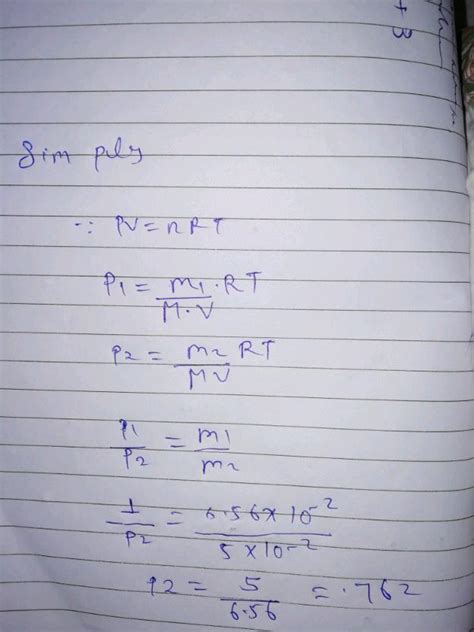 + B
Simply
∵ PV = nRT
P1 = m1·RT / M·V
P2 = m2 RT / MV
P1 / P2 = m1 / m2
1 / P2 = 6.56 × 10^-2 / 5 × 10^-2
P2 = 5 / 6.56 = .762